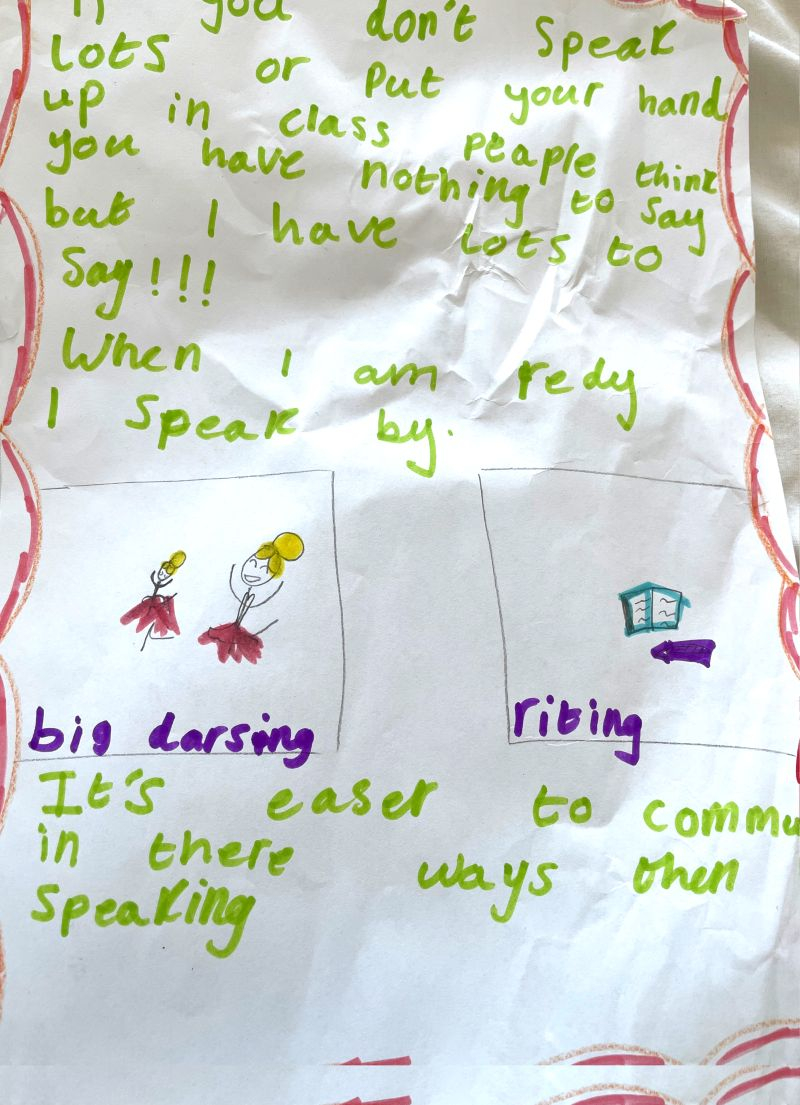 If you don't speak
lots or put your hand
up in class peaple think
you have nothing to say
but I have lots to
say!!!
When I am redy
I speak by.
big darsing
riting
It's easer to commu
in there ways then
speaking